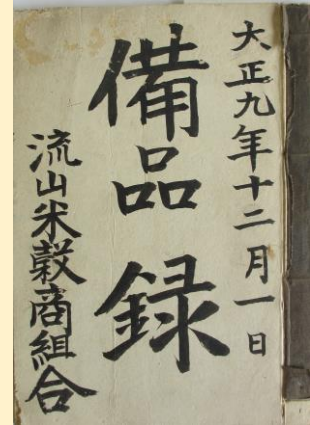 大正九年十二月一日
備品録
流山米穀商組合